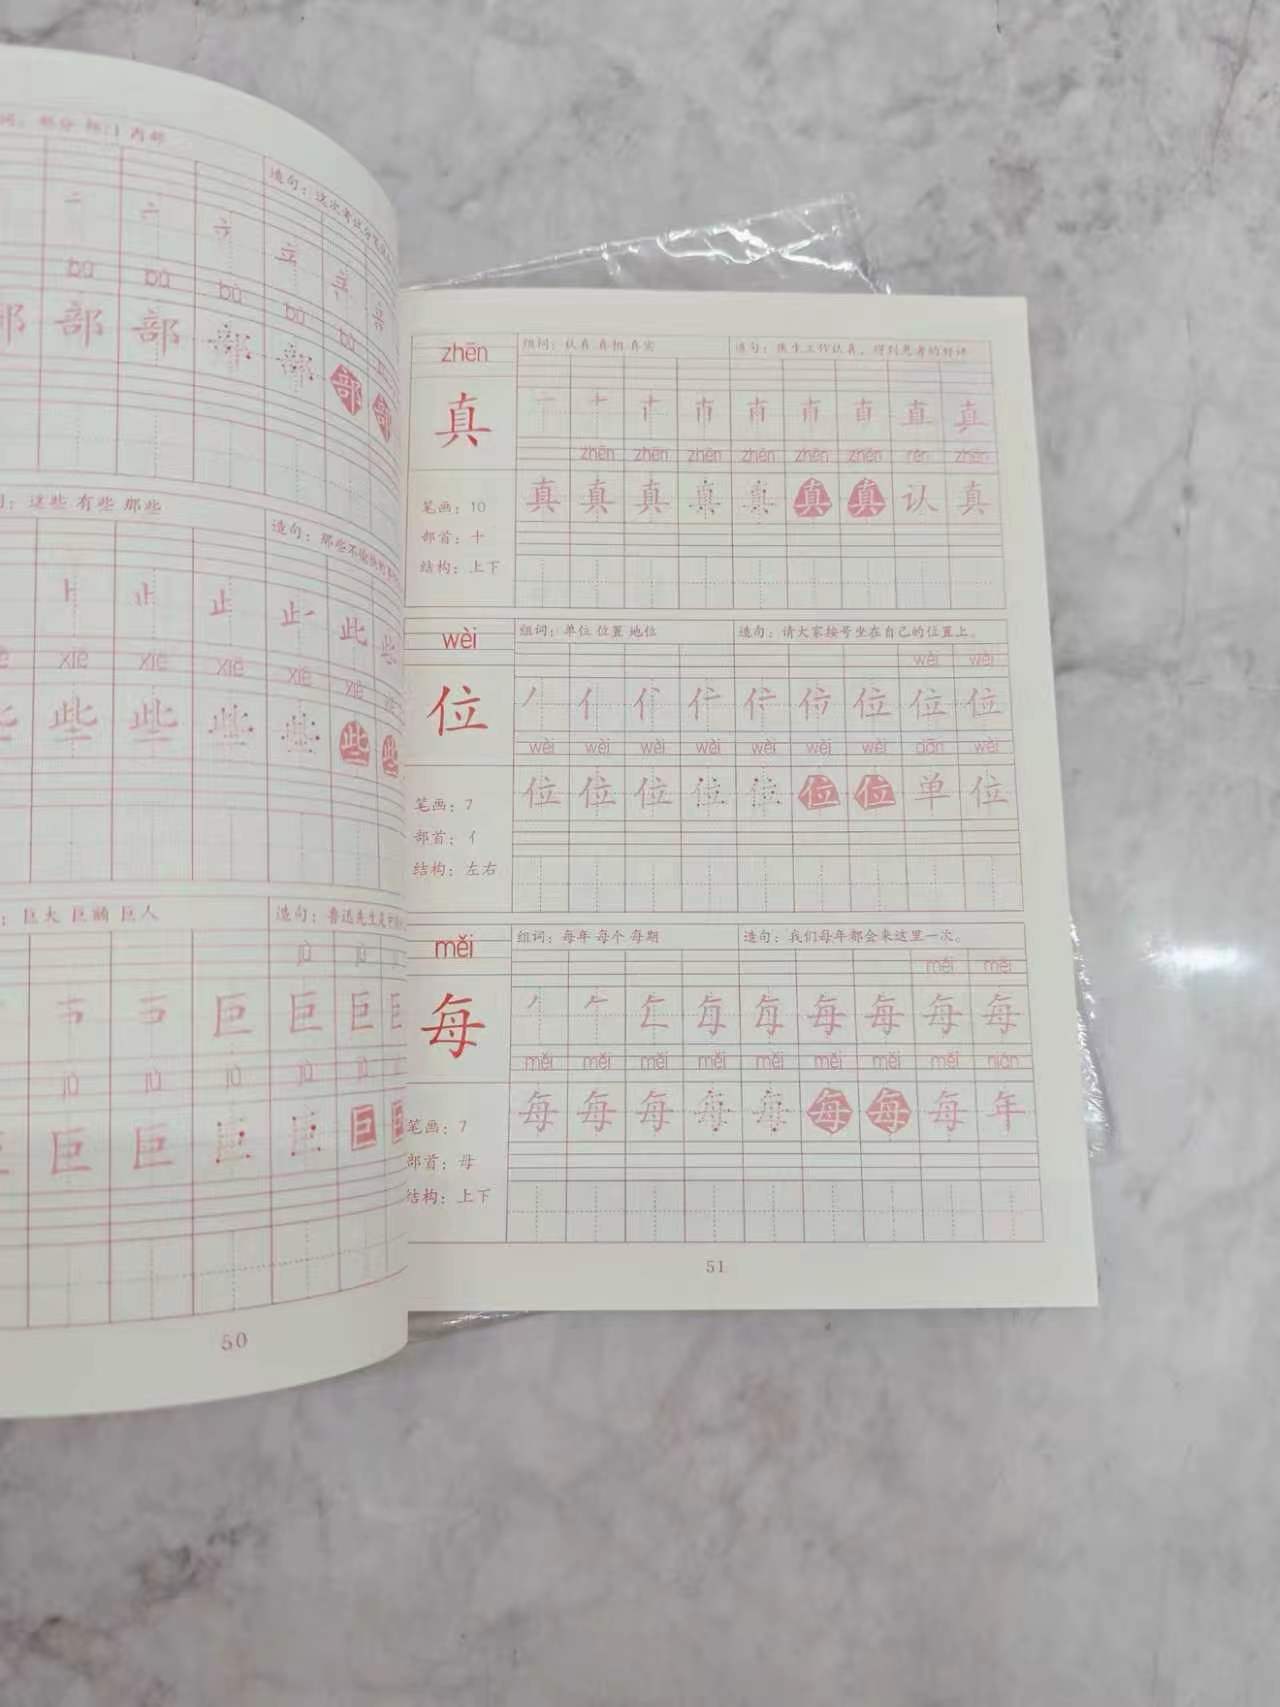 部分 部门 内部
造句：这次考试
bù bù bù bù bù
部 部 部 部 部 部 部
这些 有些 那些
造句：那些不愉快的
xiē xiē xiē xiē xiē
些 些 些 些 些 些
巨大 巨幅 巨人
造句：鲁迅先生是
jù jù
巨 巨 巨
jù jù jù jù jù
巨 巨 巨 巨 巨 巨
50
zhēn
组词：认真 真相 真实
造句：医生工作认真，得到患者的好评
真
zhēn zhēn zhēn zhēn zhēn zhēn rèn zhēn
真 真 真 真 真 真 真 认 真
笔画：10
部首：十
结构：上下
wèi
组词：单位 位置 地位
造句：请大家按号坐在自己的位置上。
wèi wèi
位
位 位 位
wèi wèi wèi wèi wèi wèi wèi dān wèi
位 位 位 位 位 位 位 单 位
笔画：7
部首：亻
结构：左右
měi
组词：每年 每个 每期
造句：我们每年都会来这里一次。
měi měi
每
每 每 每 每
měi měi měi měi měi měi měi měi nián
每 每 每 每 每 每 每 每 年
笔画：7
部首：母
结构：上下
51